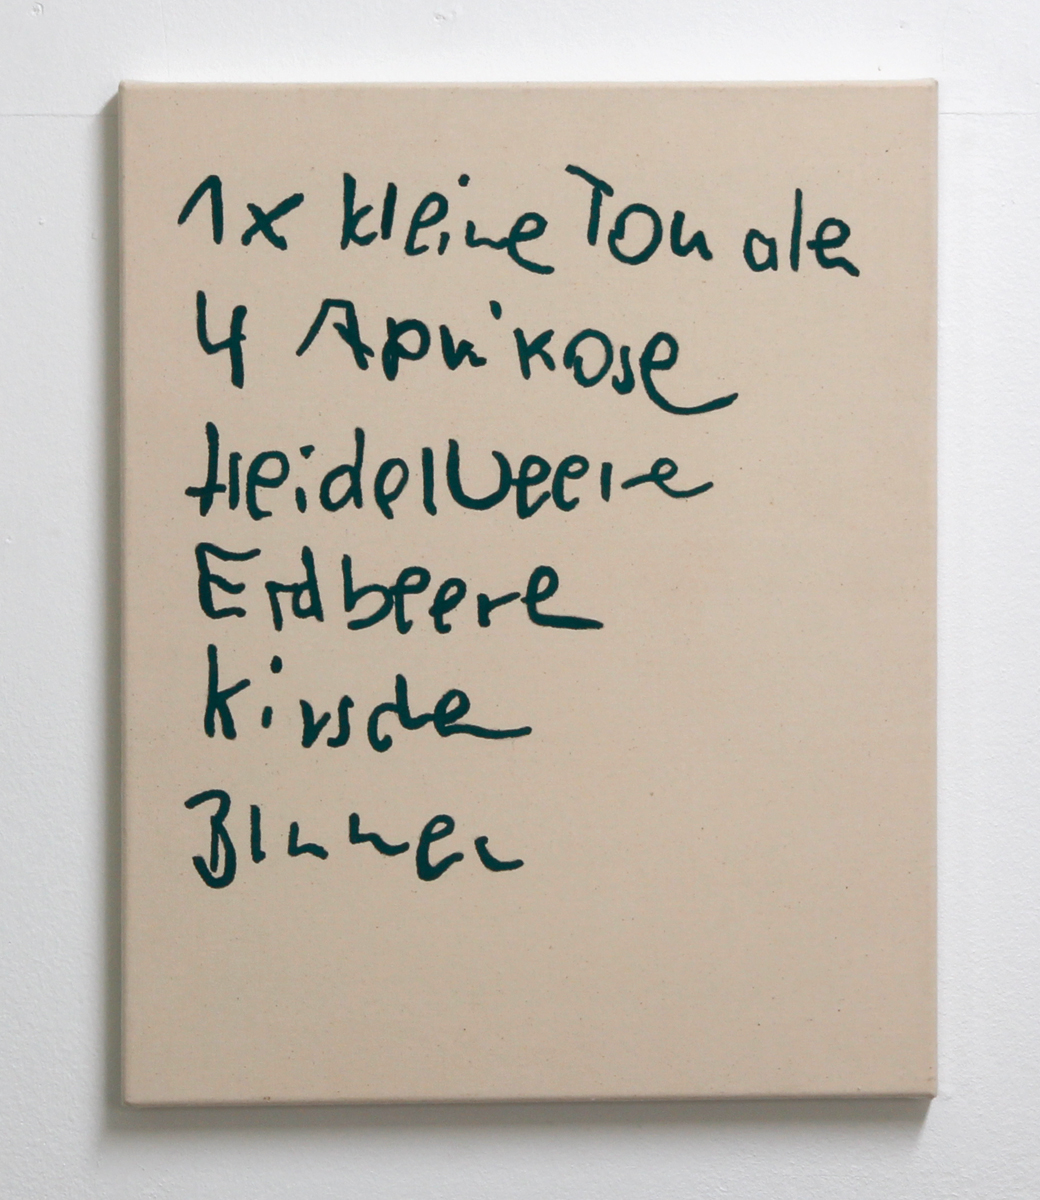 1x kleine Tomaten
4 Aprikose
Heidelbeere
Erdbeere
Kirsche
Blumen